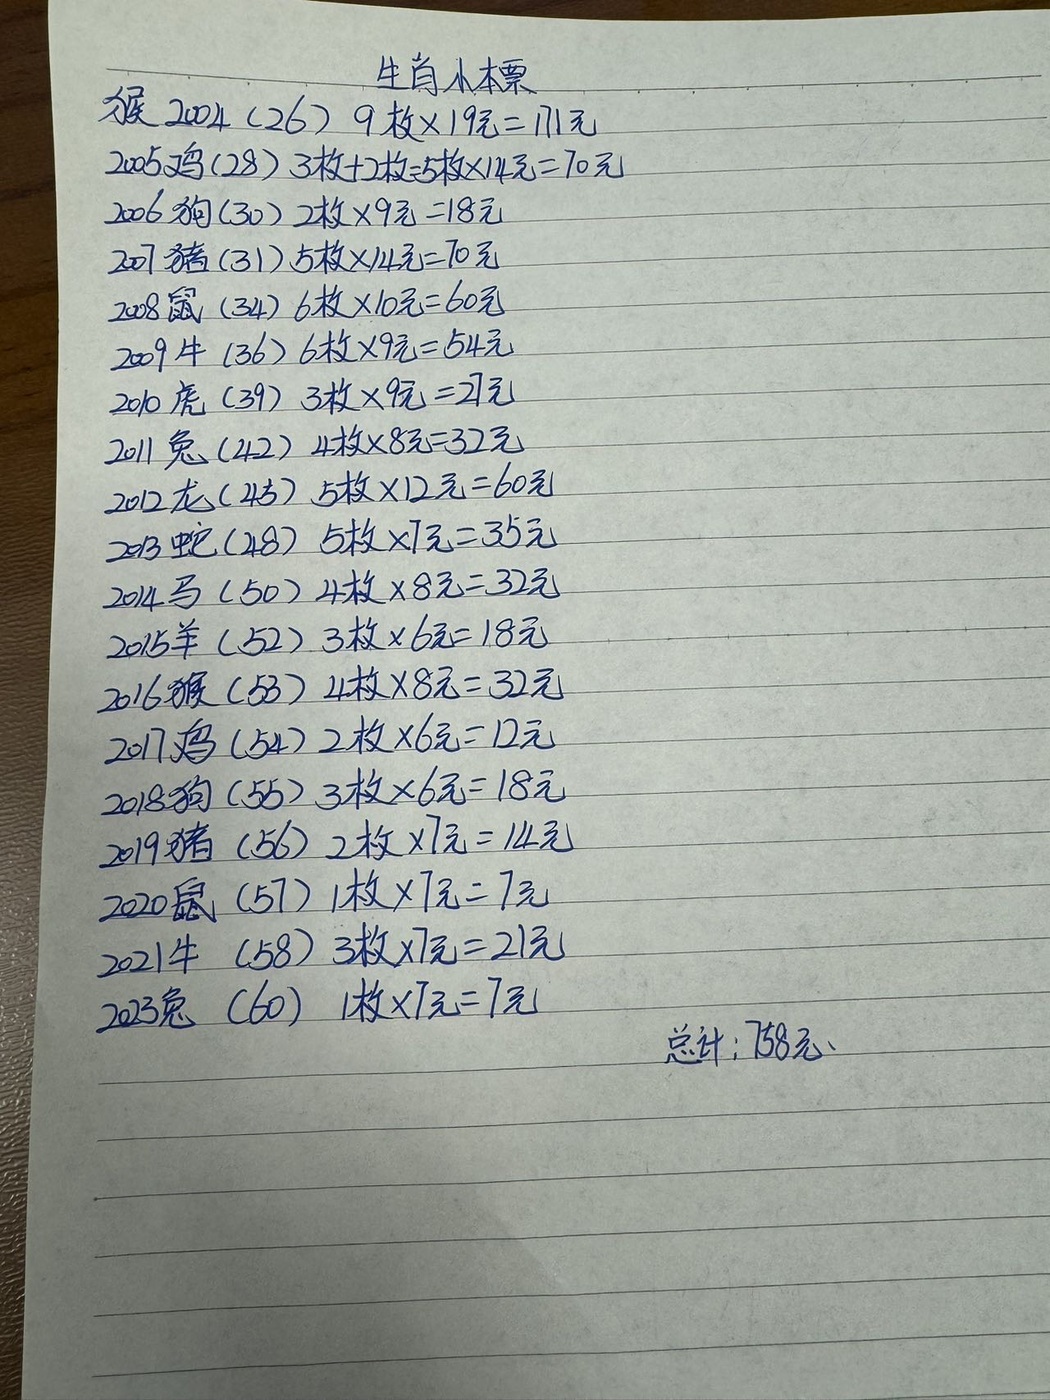 生肖小本票
猴 2004（26）9枚×19元=171元
2005鸡（28）3枚+2枚=5枚×14元=70元
2006狗（30）2枚×9元=18元
2007猪（31）5枚×14元=70元
2008鼠（34）6枚×10元=60元
2009牛（36）6枚×9元=54元
2010虎（39）3枚×9元=27元
2011兔（42）4枚×8元=32元
2012龙（45）5枚×12元=60元
2013蛇（48）5枚×7元=35元
2014马（50）4枚×8元=32元
2015羊（52）3枚×6元=18元
2016猴（53）4枚×8元=32元
2017鸡（54）2枚×6元=12元
2018狗（55）3枚×6元=18元
2019猪（56）2枚×7元=14元
2020鼠（57）1枚×7元=7元
2021牛（58）3枚×7元=21元
2023兔（60）1枚×7元=7元
总计：758元、